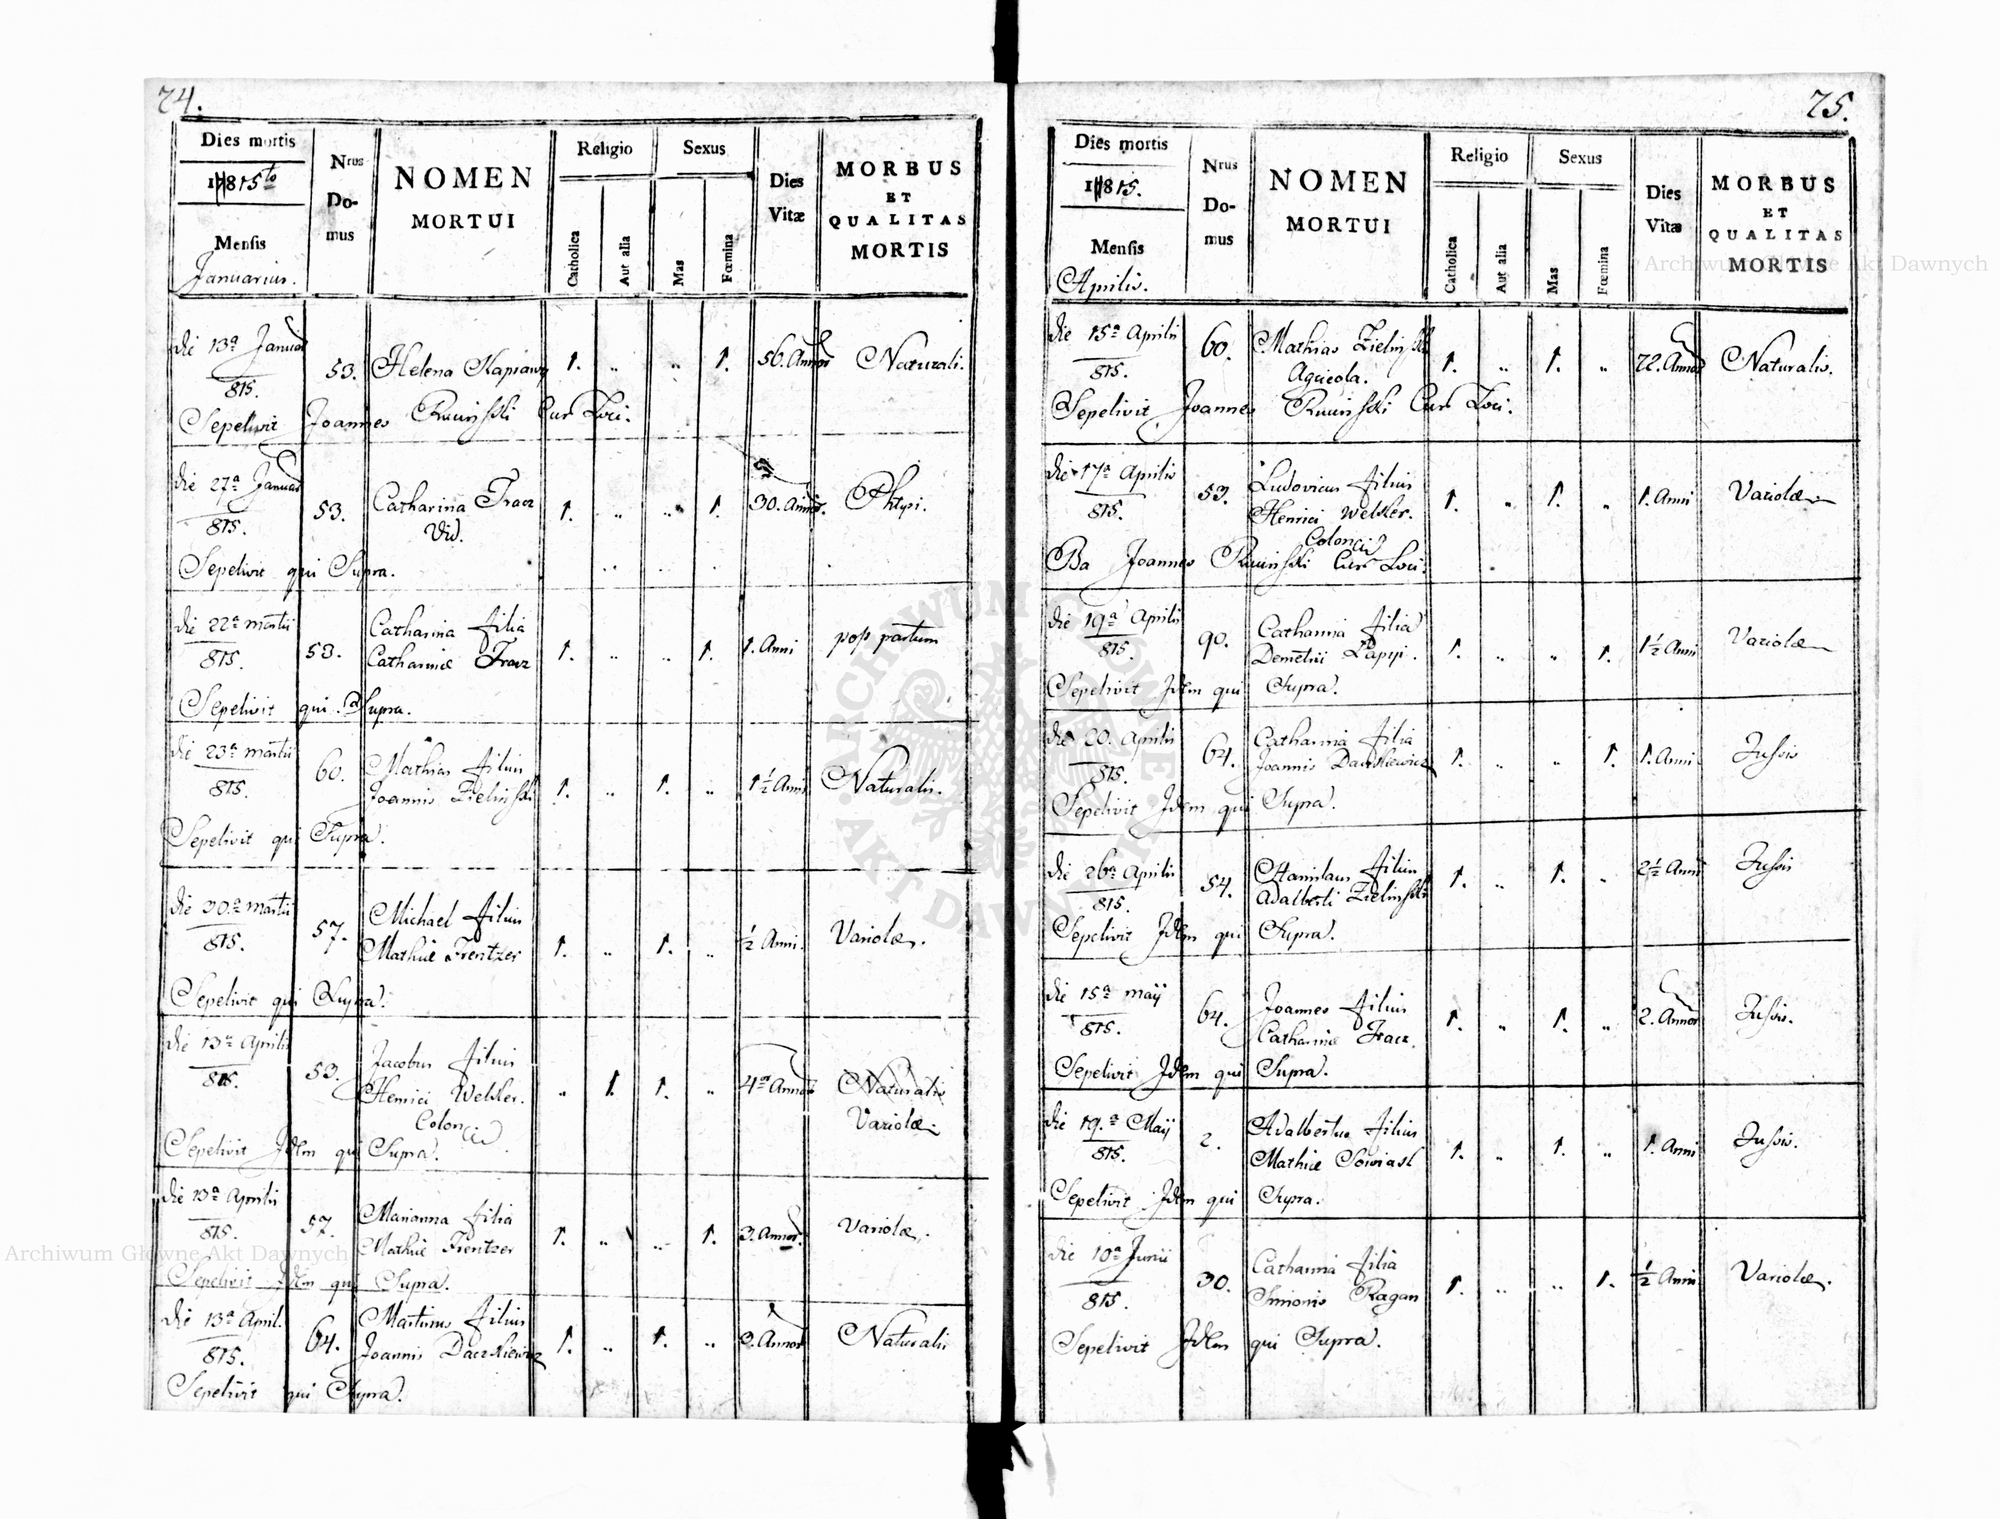 74.
Dies mortis
1815to
Mensis
Januarius.
Nrus
Do-
mus
NOMEN
MORTUI
Religio
Catholica
Aut alia
Sexus
Mas
Fœmina
Dies
Vitæ
MORBUS
ET
QUALITAS
MORTIS
die 13a Januar
815.
53. Helena 1. „ „ 1. 56. Annor Naturali.
Sepelivit Joannes Cur Loci.
die 27a Januar
815.
53. Catharina Tracz
Vid.
1. „ „ 1. 30. Annor. Phtysi.
Sepelivit qui Supra.
die 22a Martii
815.
53. Catharina filia
Catharinæ Tracz
1. „ „ 1. 1. Anni post partum
Sepelivit qui Supra.
die 23a Martii
815.
60. Mathias filius
Joannis Zielinski
1. „ 1. „ 1½ Anni Naturalis.
Sepelivit qui Supra.
die 30a Martii
815.
57. Michael filius
Mathiæ Frentzer
1. „ 1. „ ½ Anni. Variolæ.
Sepelivit qui Supra.
die 13a Aprilis
815.
53. Jacobus filius
Henrici Welsler.
„ 1. 1. „ 4a Annor Naturalis
Variolæ
Sepelivit Idem qui Supra.
die 13a Aprilis
815.
57. Marianna filia
Mathiæ Frentzer
1. „ „ 1. 3. Annor. Variolæ.
Sepelivit Idem qui Supra.
die 13a April.
815.
64. Martinus filius
Joannis Daczkiewicz
1. „ 1. „ 3. Annor Naturalis
Sepelivit qui Supra.
75.
Dies mortis
1815.
Mensis
Aprilis.
Nrus
Do-
mus
NOMEN
MORTUI
Religio
Catholica
Aut alia
Sexus
Mas
Fœmina
Dies
Vitæ
MORBUS
ET
QUALITAS
MORTIS
die 15a Aprilis
815.
60. Mathias Zielinski
Agricola.
1. „ 1. „ 72. Annor Naturalis.
Sepelivit Joannes Cur Loci.
die 17a Aprilis
815.
53. Ludovicus filius
Henrici Welsler.
1. „ 1. „ 1. Anni Variolæ
Ba Joannes Cur Loci.
die 19a Aprilis
815.
90. Catharina filia
Demetrii Lapyi.
1. „ „ 1. 1½ Anni Variolæ
Sepelivit Idem qui Supra.
die 20. Aprilis
815.
64. Catharina filia
Joannis Daczkiewicz
1. „ „ 1. 1. Anni Tussis
Sepelivit Idem qui Supra.
die 26a Aprilis
815.
54. Stanislaus filius
Adalberti Zielinski
1. „ 1. „ 2½ Anni Tussis
Sepelivit Idem qui Supra.
die 15a maij
815.
64. Joannes filius
Catharinæ Tracz.
1. „ 1. „ 2. Annor Tussis.
Sepelivit Idem qui Supra.
die 19.a Maij
815.
2. Adalbertus filius
Mathiæ Sowiasl
1. „ 1. „ 1. Anni Tussis.
Sepelivit Idem qui Supra.
die 10a Junii
815.
30. Catharina filia
Simonis Ragan
1. „ „ 1. ½ Anni Variolæ.
Sepelivit Idem qui Supra.
ARCHIWUM GŁÓWNE AKT DAWNYCH
Archiwum Główne Akt Dawnych
Archiwum Główne Akt Dawnych